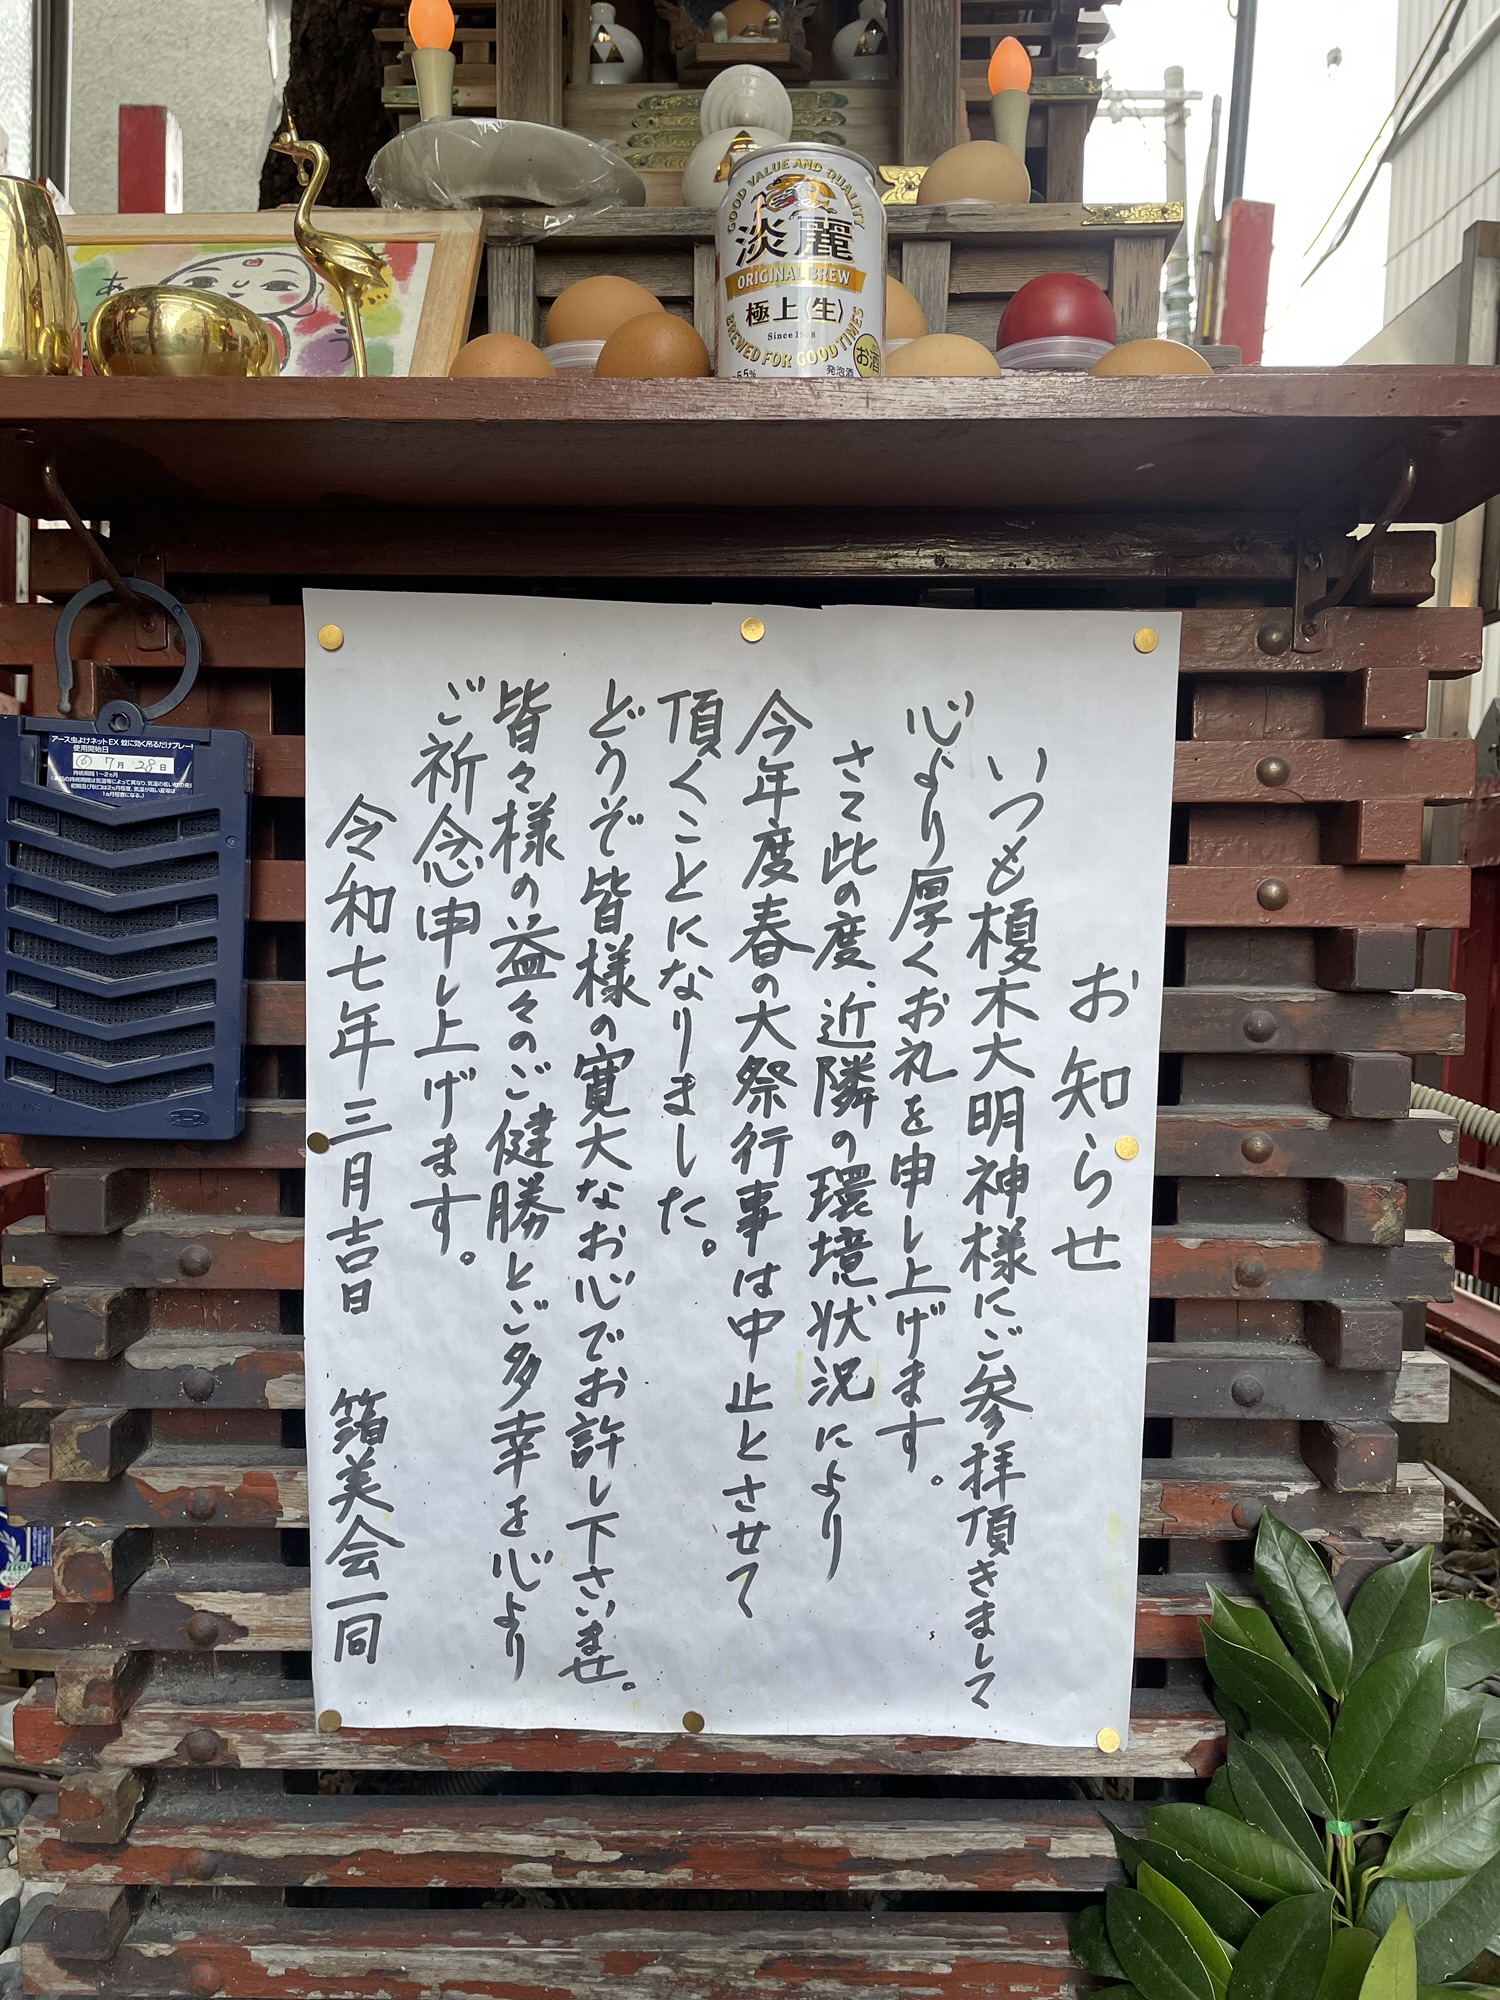 GOOD VALUE AND QUALITY
淡麗
ORIGINAL BREW
極上〈生〉
Since1998
BREWED FOR GOOD TIMES
5.5%
発泡酒
お酒
あ
う
アース虫よけネットEX 蚊に効く吊るだけプレート
使用開始日
⑥ 7月28日
持続期間1~2ヵ月
お知らせ
いつも榎木大明神様にご参拝頂きまして
心より厚くお礼を申し上げます。
さて此の度、近隣の環境状況により
今年度春の大祭行事は中止とさせて
頂くことになりました。
どうぞ皆様の寛大なお心でお許し下さいませ。
皆々様の益々のご健勝とご多幸を心より
ご祈念申し上げます。
令和七年三月吉日 箔美会一同